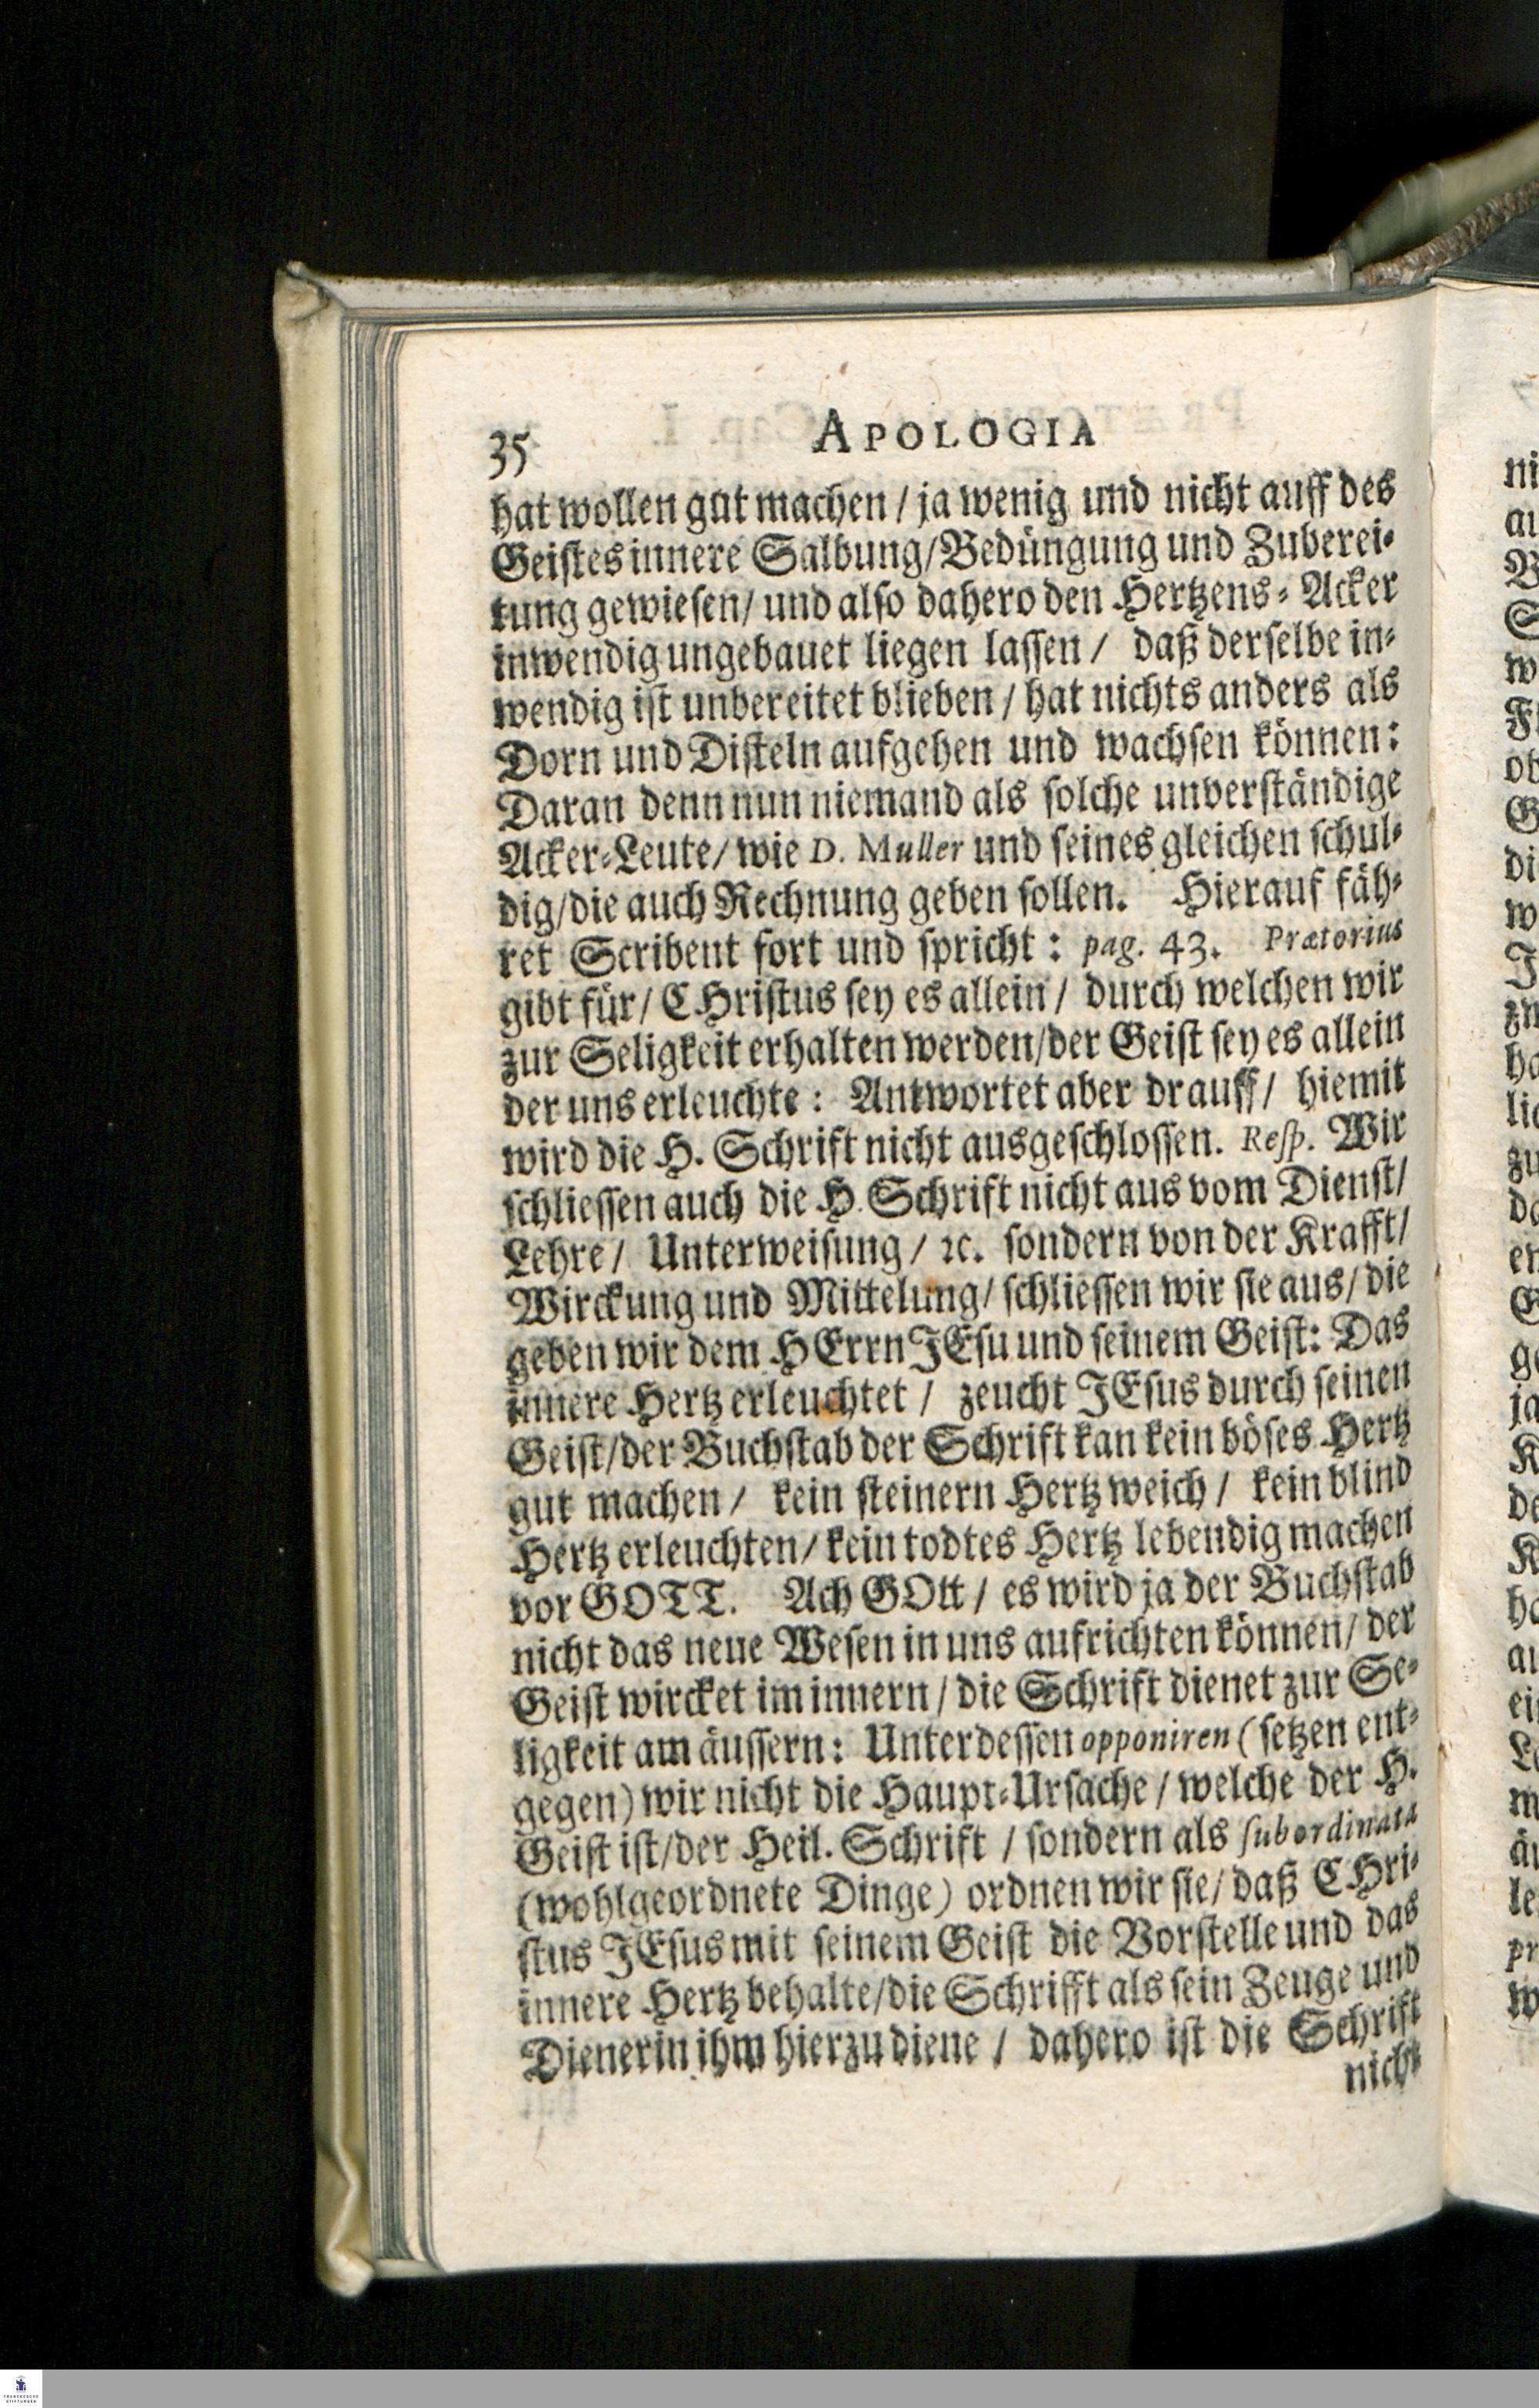 35 APOLOGIA
hat wollen gut machen / ja wenig und nicht auff des
Geistes innere Salbung/Bedüngung und Zuberei-
tung gewiesen/ und also dahero den Hertzens-Acker
inwendig ungebauet liegen lassen / daß derselbe in-
wendig ist unbereitet blieben / hat nichts anders als
Dorn und Disteln aufgehen und wachsen können:
Daran denn nun niemand als solche unverständige
Acker-Leute/ wie D. Muller und seines gleichen schul-
dig/die auch Rechnung geben sollen. Hierauf fäh-
ret Scribent fort und spricht: pag. 43. Prætorius
gibt für/ CHristus sey es allein / durch welchen wir
zur Seligkeit erhalten werden/der Geist sey es allein
der uns erleuchte: Antwortet aber drauff/ hiemit
wird die H. Schrift nicht ausgeschlossen. Resp. Wir
schliessen auch die H. Schrift nicht aus vom Dienst/
Lehre/ Unterweisung / ꝛc. sondern von der Krafft/
Wirckung und Mittelung/ schliessen wir sie aus/ die
geben wir dem HErrn JEsu und seinem Geist: Das
innere Hertz erleuchtet / zeucht JEsus durch seinen
Geist/der Buchstab der Schrift kan kein böses Hertz
gut machen / kein steinern Hertz weich / kein blind
Hertz erleuchten/ kein todtes Hertz lebendig machen
vor GOTT. Ach GOtt / es wird ja der Buchstab
nicht das neue Wesen in uns aufrichten können/ der
Geist wircket im innern / die Schrift dienet zur Se-
ligkeit am äussern: Unterdessen opponiren (setzen ent-
gegen) wir nicht die Haupt-Ursache / welche der H.
Geist ist/der Heil. Schrift / sondern als subordinata
(wohlgeordnete Dinge) ordnen wir sie/ daß CHri-
stus JEsus mit seinem Geist die Vorstelle und das
innere Hertz behalte/die Schrifft als sein Zeuge und
Dienerin ihm hierzu diene / dahero ist die Schrift
nicht